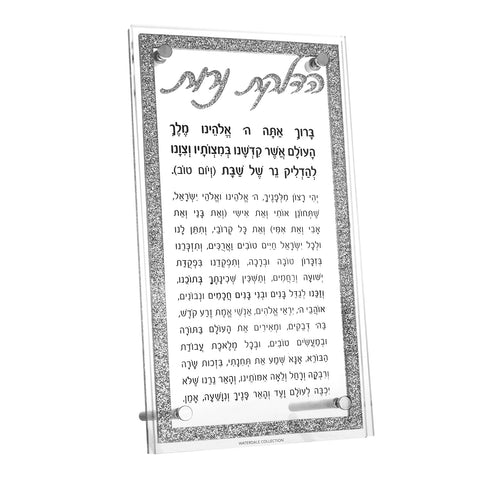 הדלקת נרות
בָּרוּךְ אַתָּה ה' אֱלֹהֵינוּ מֶלֶךְ
הָעוֹלָם אֲשֶׁר קִדְּשָׁנוּ בְּמִצְוֹתָיו וְצִוָּנוּ
לְהַדְלִיק נֵר שֶׁל שַׁבָּת (וְיוֹם טוֹב).
יְהִי רָצוֹן מִלְּפָנֶיךָ, ה' אֱלֹהֵינוּ וֵאלֹהֵי יִשְׂרָאֵל,
שֶׁתְּחוֹנֵן אוֹתִי וְאֶת אִישִׁי (וְאֶת בָּנַי וְאֶת
אָבִי וְאֶת אִמִּי) וְאֶת כָּל קְרוֹבַי, וְתִתֵּן לָנוּ
וּלְכָל יִשְׂרָאֵל חַיִּים טוֹבִים וַאֲרֻכִּים, וְתִזְכְּרֵנוּ
בְּזִכְרוֹן טוֹבָה וּבְרָכָה, וְתִפְקְדֵנוּ בִּפְקֻדַּת
יְשׁוּעָה וְרַחֲמִים, וְתַשְׁכֵּין שְׁכִינָתְךָ בְּתוֹכֵנוּ,
וְזַכֵּנוּ לְגַדֵּל בָּנִים וּבְנֵי בָנִים חֲכָמִים וּנְבוֹנִים,
אוֹהֲבֵי ה', יִרְאֵי אֱלֹהִים, אַנְשֵׁי אֱמֶת זֶרַע קֹדֶשׁ,
בַּה' דְּבֵקִים, וּמְאִירִים אֶת הָעוֹלָם בַּתּוֹרָה
וּבְמַעֲשִׂים טוֹבִים, וּבְכָל מְלֶאכֶת עֲבוֹדַת
הַבּוֹרֵא. אָנָּא שְׁמַע אֶת תְּחִנָּתִי, בִּזְכוּת שָׂרָה
וְרִבְקָה וְרָחֵל וְלֵאָה אִמּוֹתֵינוּ, וְהָאֵר נֵרֵנוּ שֶׁלֹּא
יִכְבֶּה לְעוֹלָם וָעֶד וְהָאֵר פָּנֶיךָ וְנִוָּשֵׁעָה. אָמֵן.
WATERDALE COLLECTION